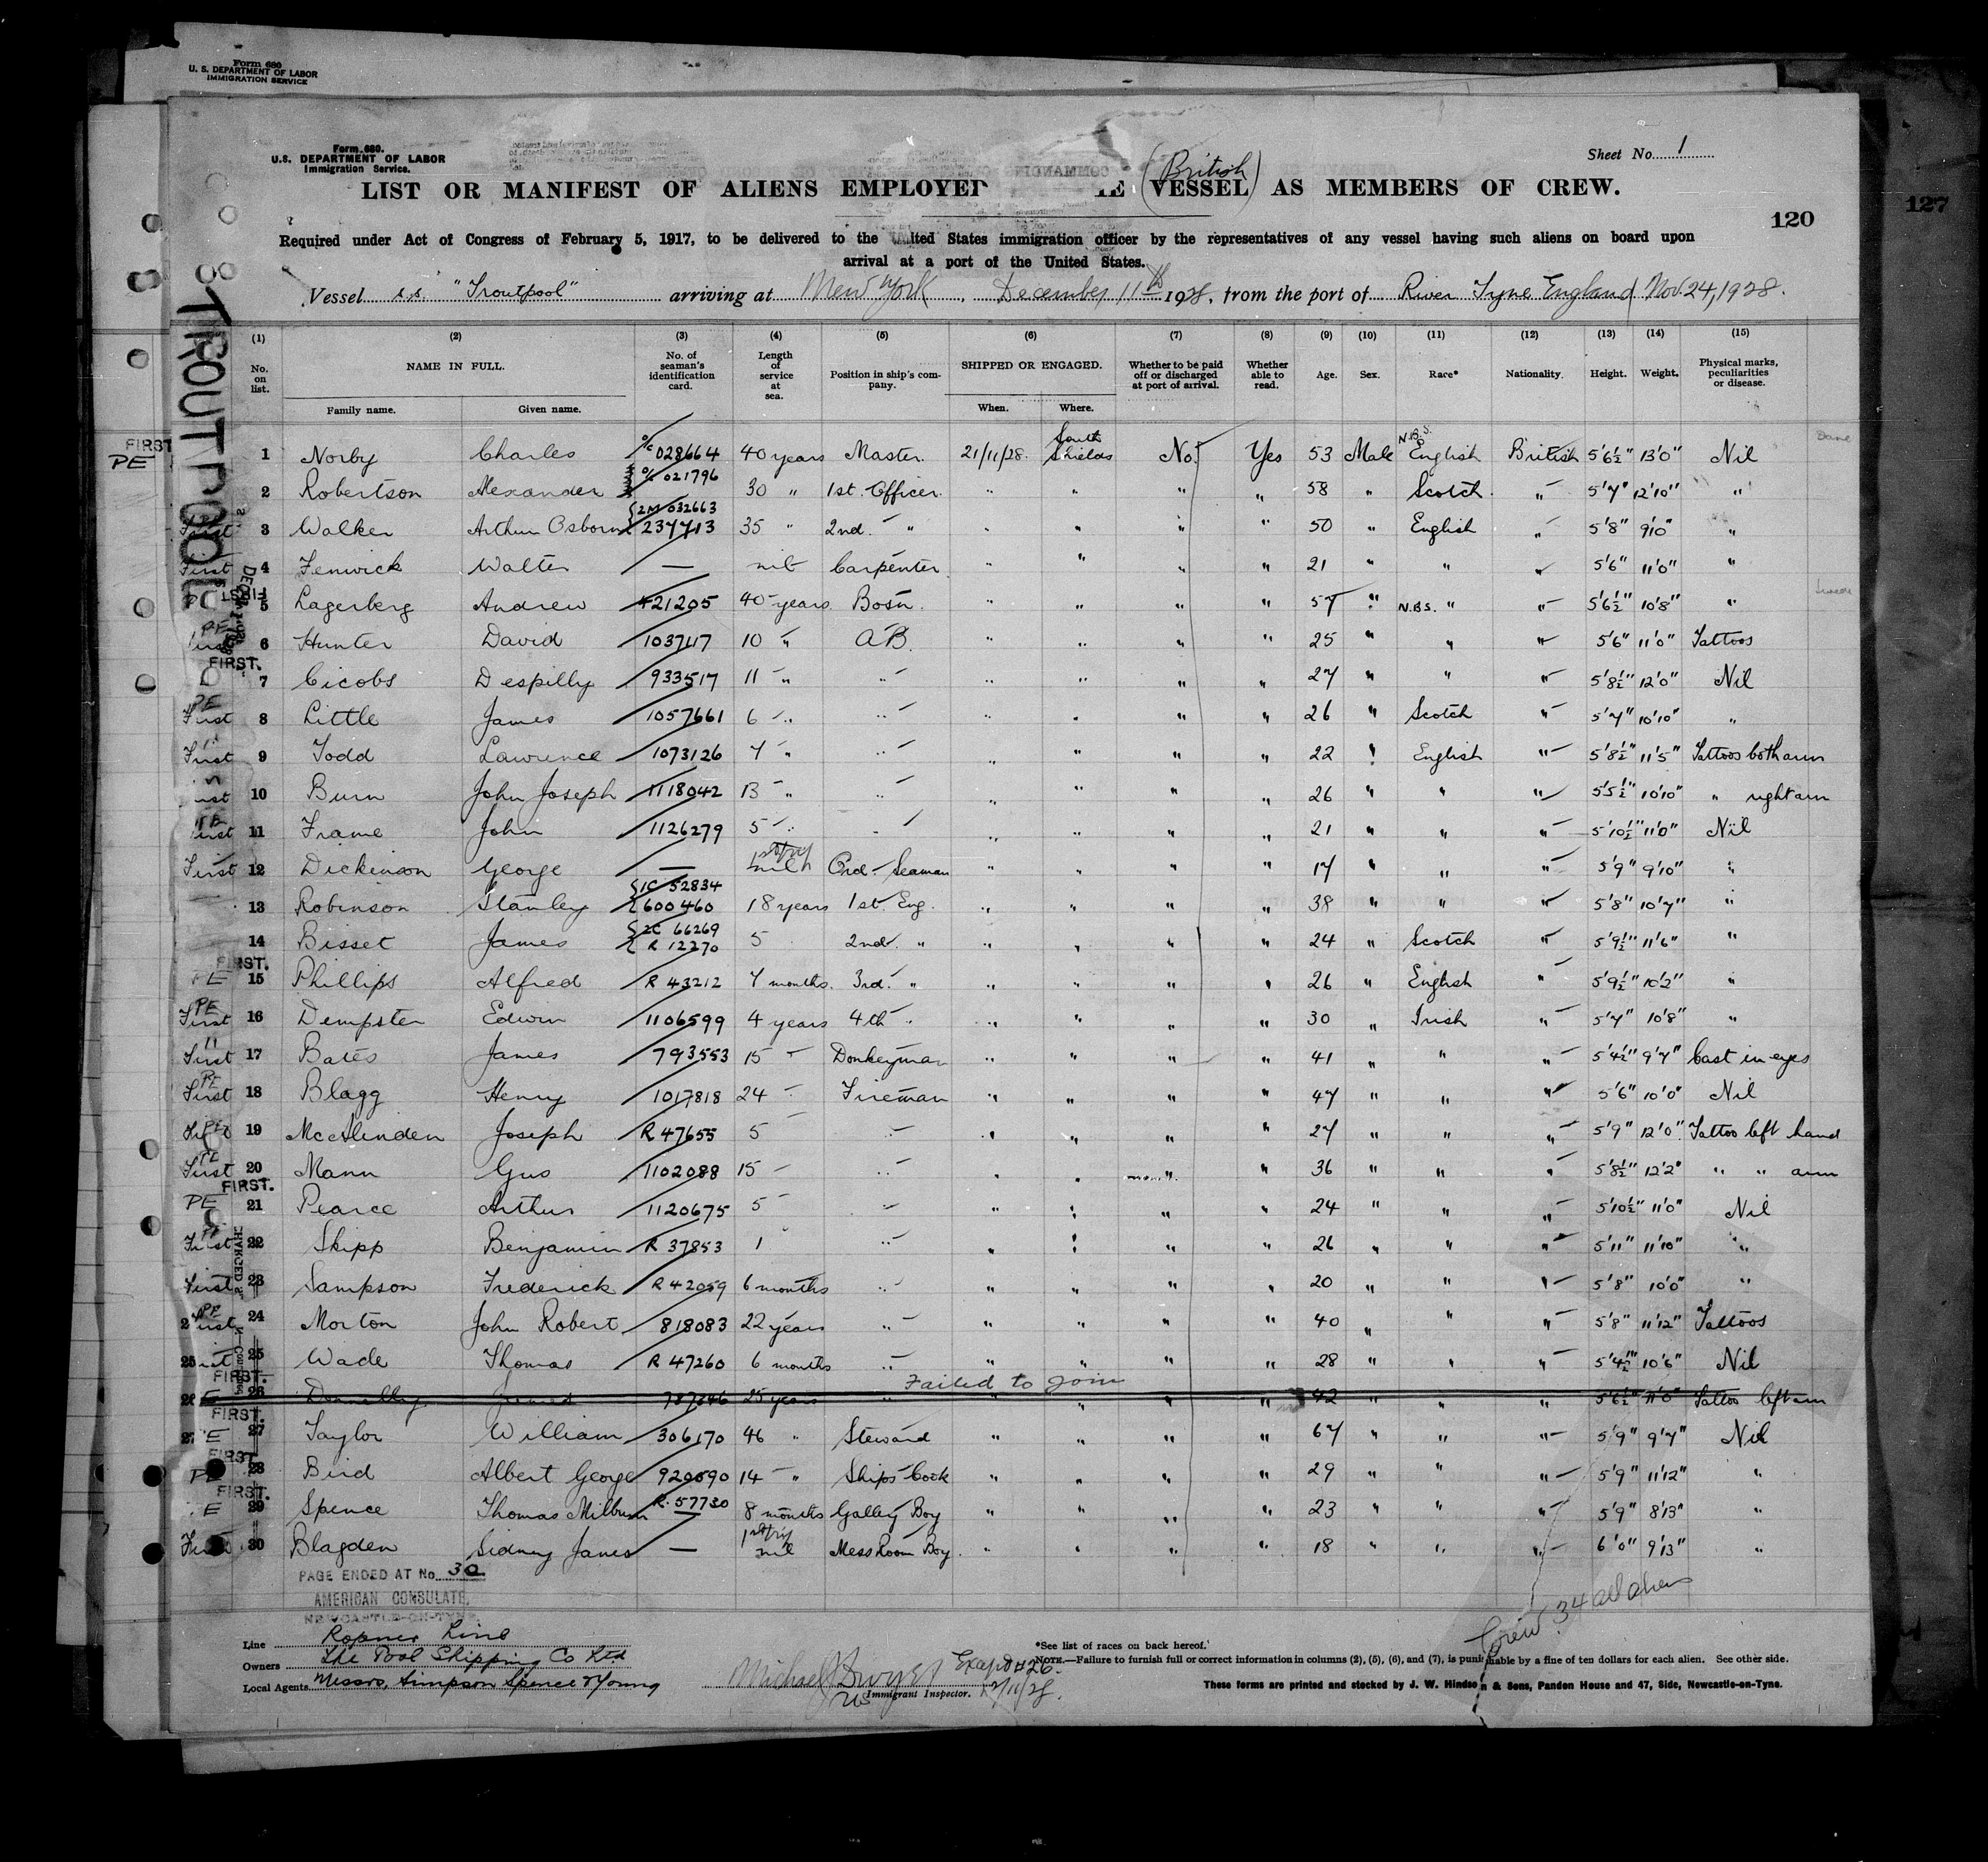 Form 680
U. S. DEPARTMENT OF LABOR
IMMIGRATION SERVICE
Form 680.
U.S. DEPARTMENT OF LABOR
Immigration Service.
Sheet No. 1
(British)
LIST OR MANIFEST OF ALIENS EMPLOYED VESSEL AS MEMBERS OF CREW.
120
127
Required under Act of Congress of February 5, 1917, to be delivered to the United States immigration officer by the representatives of any vessel having such aliens on board upon
arrival at a port of the United States.
Vessel s.s. "Troutpool" arriving at New York, December 11th 1928, from the port of River Tyne England Nov. 24, 1928.
TROUTPOOL
(1) (2) (3) (4) (5) (6) (7) (8) (9) (10) (11) (12) (13) (14) (15)
No. on list. NAME IN FULL. No. of seaman's identification card. Length of service at sea. Position in ship's company. SHIPPED OR ENGAGED. Whether to be paid off or discharged at port of arrival. Whether able to read. Age. Sex. Race* Nationality. Height. Weight. Physical marks, peculiarities or disease.
Family name. Given name. When. Where.
FIRST PE 1 Norby Charles 028664 40 years Master 21/11/28. South Shields No. Yes 53 Male N.B.S. English British 5'6½" 13'0" Nil Dane
2 Robertson Alexander 021796 30 " 1st. Officer " " " " 58 " Scotch " 5'7" 12'10" "
First 3 Walker Arthur Osborn 2M 032663 237713 35 " 2nd. " " " " " 50 " English " 5'8" 9'0" "
First 4 Fenwick Walter — nil Carpenter " " " " 21 " " " 5'6" 11'0" "
FIRST 5 Lagerberg Andrew 421205 40 years. Bosn. " " " " 57 " N.B.S. " " 5'6½" 10'8" " Swede
PE First 6 Hunter David 1037117 10 " A.B. " " " " 25 " " " 5'6" 11'0" Tattoos
FIRST. 7 Cicobs Despilly 933517 11 " " " " " " 27 " " " 5'8½" 12'0" Nil
PE First 8 Little James 1057661 6 " " " " " " 26 " Scotch " 5'7" 10'10" "
First 9 Todd Lawrence 1073126 7 " " " " " " 22 " English " 5'8½" 11'5" Tattoos both arm
10 Burn John Joseph 1118042 13 " " " " " " 26 " " " 5'5½" 10'10" " right arm
First 11 Frame John 1126279 5 " " " " " " 21 " " " 5'10½" 11'0" Nil
First 12 Dickinson George — 1st trip nil Ord. Seaman " " " " 17 " " " 5'9" 9'10" "
13 Robinson Stanley 1C 52834 600460 18 years 1st. Eng. " " " " 38 " " " 5'8" 10'7" "
14 Bisset James 2C 66269 R 12270 5 2nd. " " " " " 24 " Scotch " 5'9½" 11'6" "
FIRST. PE 15 Phillips Alfred R 43212 7 months. 3rd. " " " " " 26 " English " 5'9½" 10'2" "
PE First 16 Dempster Edwin 1106599 4 years 4th " " " " " 30 " Irish " 5'7" 10'8" "
First 17 Bates James 793553 15 " Donkeyman " " " " 41 " " " 5'4½" 9'7" Cast in eyes
PE First 18 Blagg Henry 1017818 24 " Fireman " " " " 47 " " " 5'6" 10'0" Nil
First 19 McAlinden Joseph R 47655 5 " " " " " 27 " " " 5'9" 12'0" Tattoo left hand
PE First 20 Mann Gus 1102088 15 " " " " " 36 " " " 5'8½" 12'2" " " arm
FIRST. PE 21 Pearce Arthur 1120675 5 " " " " " 24 " " " 5'10½" 11'0" Nil
First 22 Skipp Benjamin R 37853 1 " " " " " 26 " " " 5'11" 11'10" "
First 23 Sampson Frederick R 42059 6 months " " " " " 20 " " " 5'8" 10'0" "
PE First 24 Morton John Robert 818083 22 years " " " " " 40 " " " 5'8" 11'12" Tattoos
25 Wade Thomas R 47260 6 months " " " " " 28 " " " 5'4½" 10'6" Nil
Failed to join
FIRST. 26 Donnelly 25 years " " " " 42 " " " 5'6½" 11'0" Tattoo left arm
FIRST. 27 Taylor William 306170 46 " Steward " " " " 67 " " " 5'9" 9'7" Nil
FIRST. PE 28 Bird Albert George 920690 14 " Ships Cook " " " " 29 " " " 5'9" 11'12" "
FIRST. 29 Spence Thomas Milburn R. 57730 8 months Galley Boy " " " " 23 " " " 5'9" 8'13" "
First 30 Blagden Sidney James — 1st trip nil Mess Room Boy. " " " " 18 " " " 6'0" 9'13" "
PAGE ENDED AT No. 30
AMERICAN CONSULATE,
NEWCASTLE-ON-TYNE.
Crew 34 all aliens
Line Ropner Line
Owners The Pool Shipping Co Ltd
Local Agents Messrs, Simpson Spence & Young
Michael J Dwyer
Immigrant Inspector.
*See list of races on back hereof.
NOTE.—Failure to furnish full or correct information in columns (2), (5), (6), and (7), is punishable by a fine of ten dollars for each alien. See other side.
These forms are printed and stocked by J. W. Hindson & Sons, Pandon House and 47, Side, Newcastle-on-Tyne.